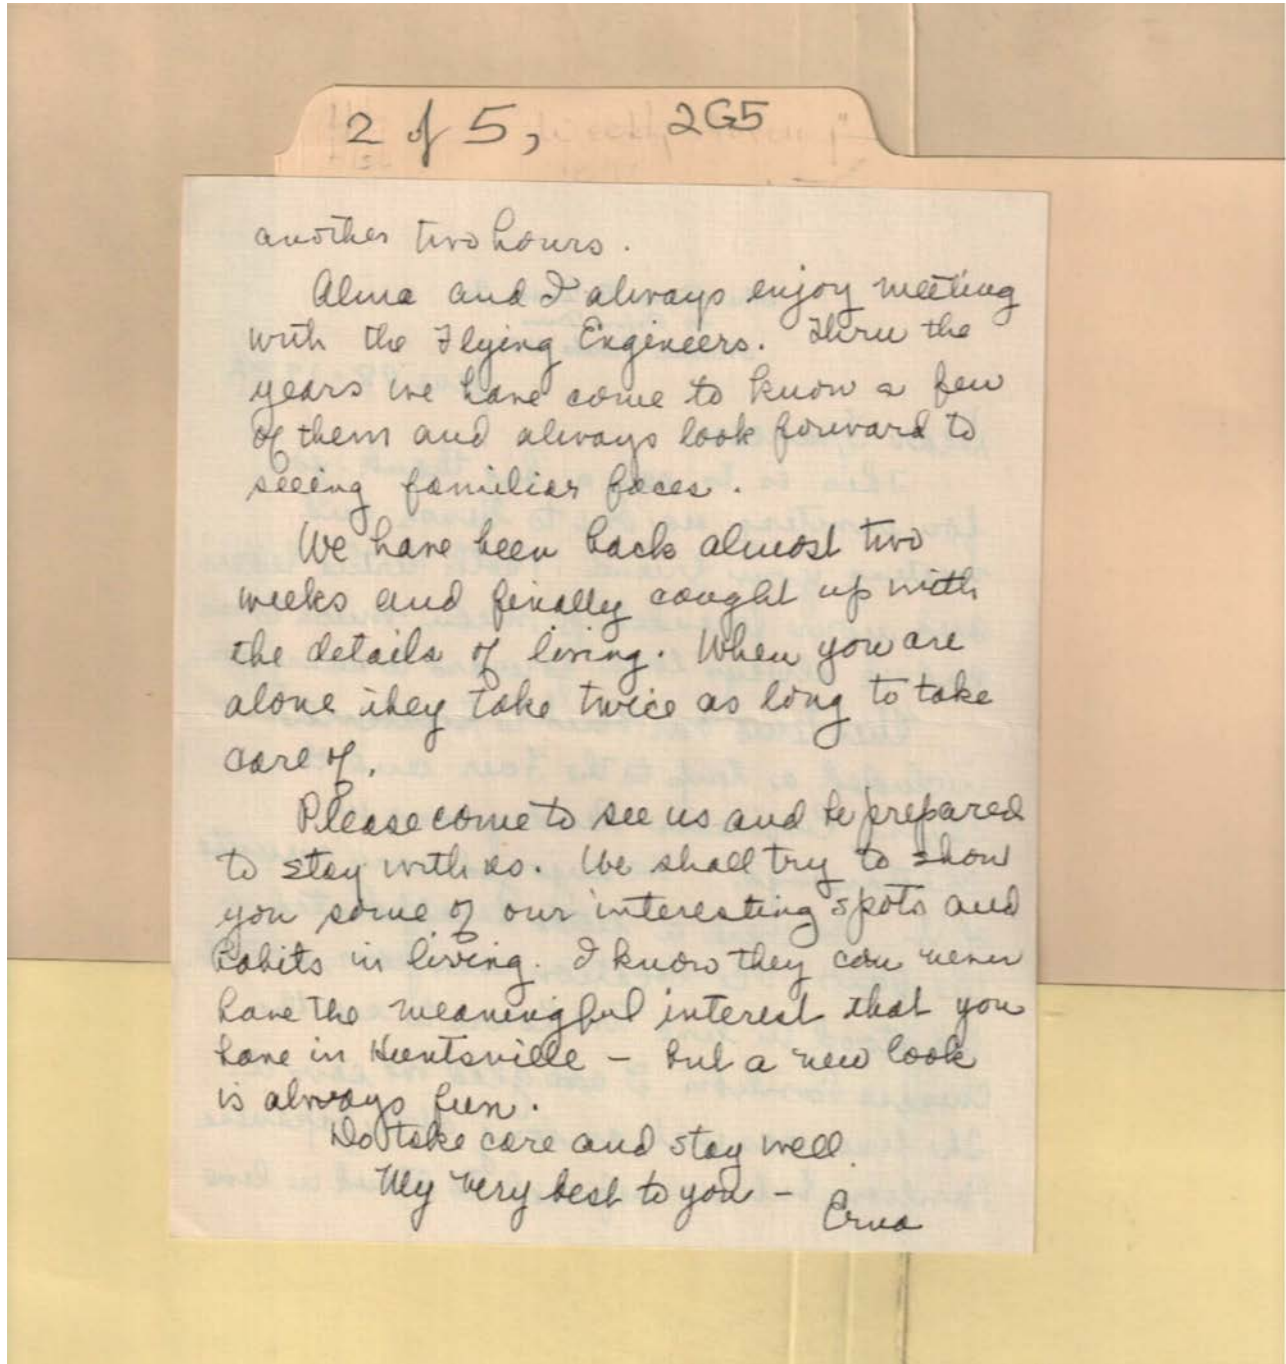 2 of 5, 2G5
another two hours.
Alma and I always enjoy meeting
with the Flying Engineers. Thru the
years we have come to know a few
of them and always look forward to
seeing familiar faces.
We have been back almost two
weeks and finally caught up with
the details of living. When you are
alone they take twice as long to take
care of.
Please come to see us and be prepared
to stay with us. We shall try to show
you some of our interesting spots and
habits in living. I know they can never
have the meaningful interest that you
have in Huntsville – but a new look
is always fun.
Do take care and stay well.
My very best to you –
Erna